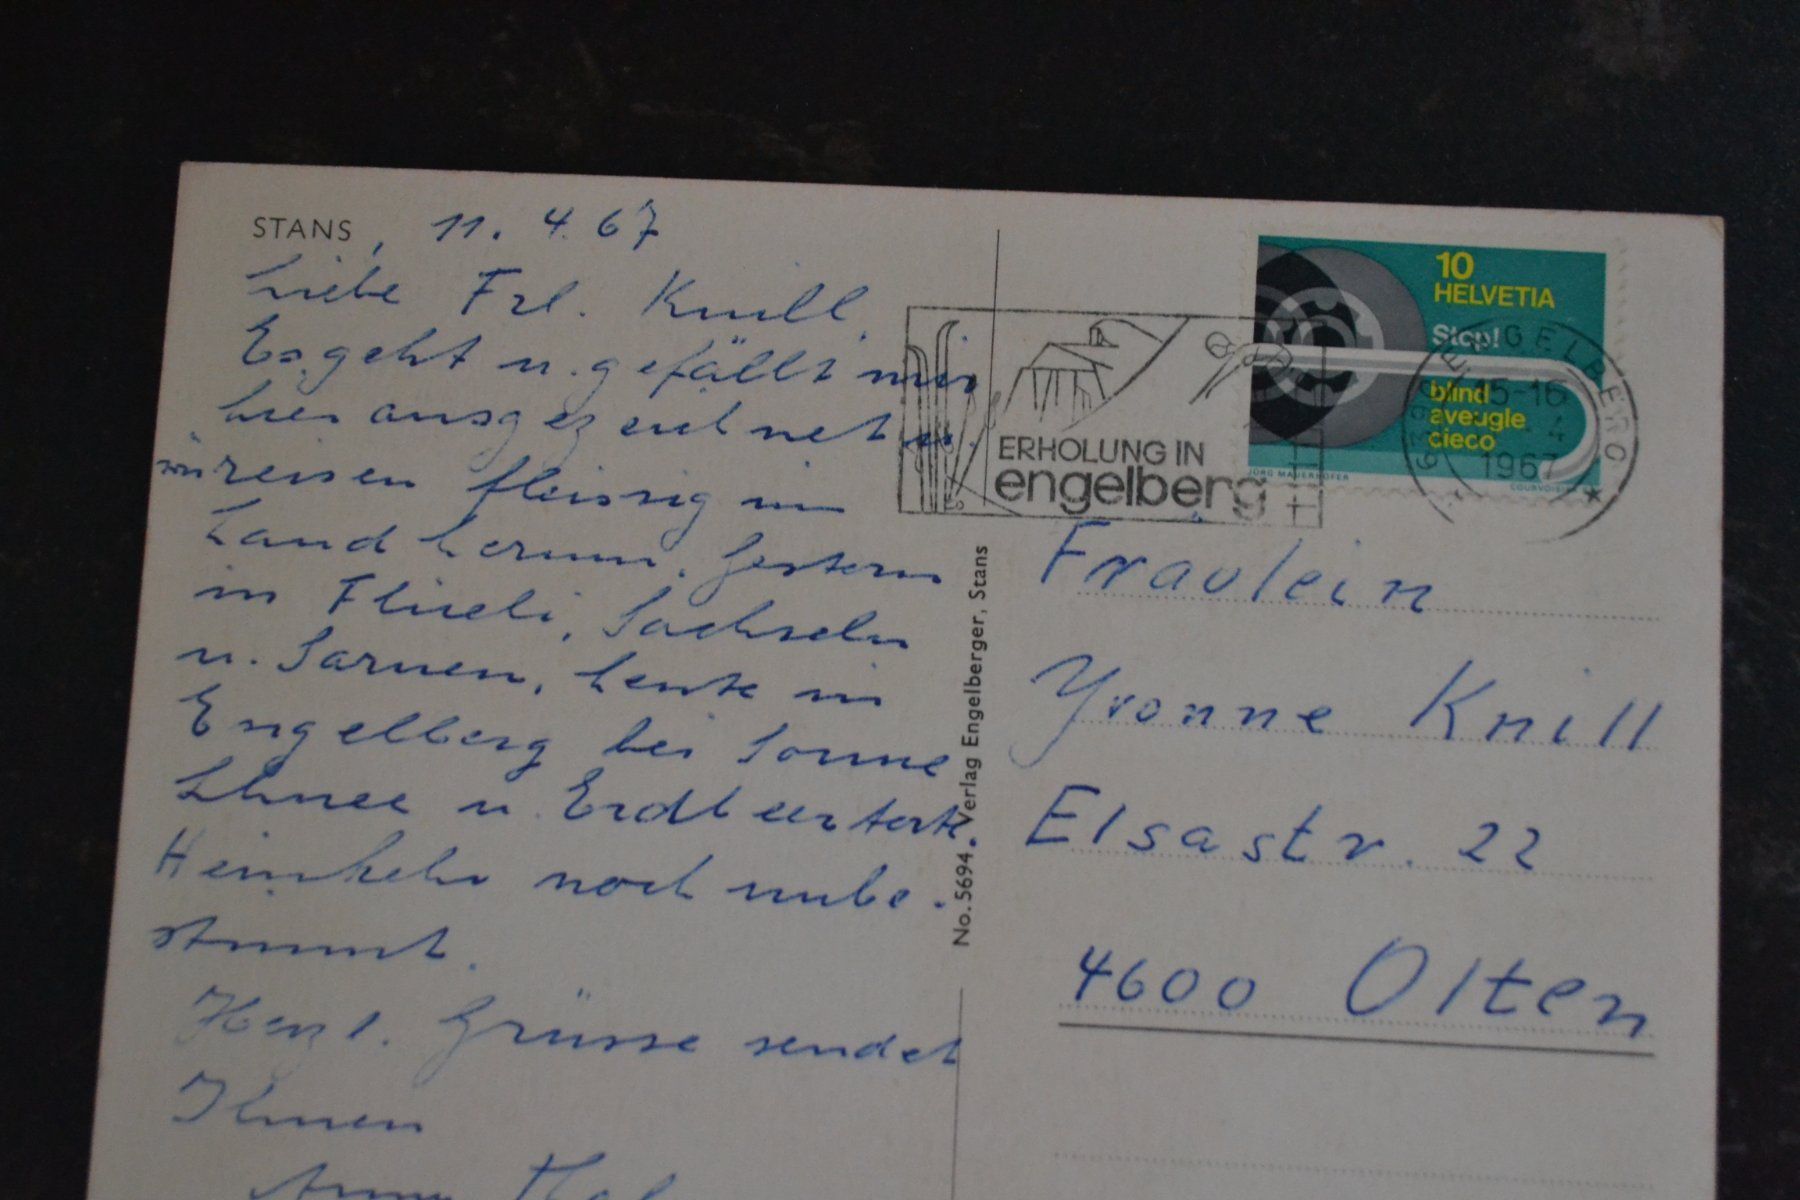 STANS, 11. 4. 67
Liebe Frl. Knill.
Es geht u. gefällt mir
hier ausgezeichnet u.
wir reisen fleissig im
Land herum. Gestern
in Flüeli, Sachseln
u. Sarnen, heute in
Engelberg bei Sonne
Schnee u. Erdbeertorte
Heimkehr noch unbe-
stimmt.
Herzl. Grüsse sendet
Ihnen
No. 5694. Verlag Engelberger, Stans
ERHOLUNG IN
engelberg
10
HELVETIA
Stop!
blind
aveugle
cieco
JÖRG MAUERHOFER
COURVOISIER
6390 ENGELBERG
15-16
4
1967
Fräulein
Yvonne Knill
Elsastr. 22
4600 Olten